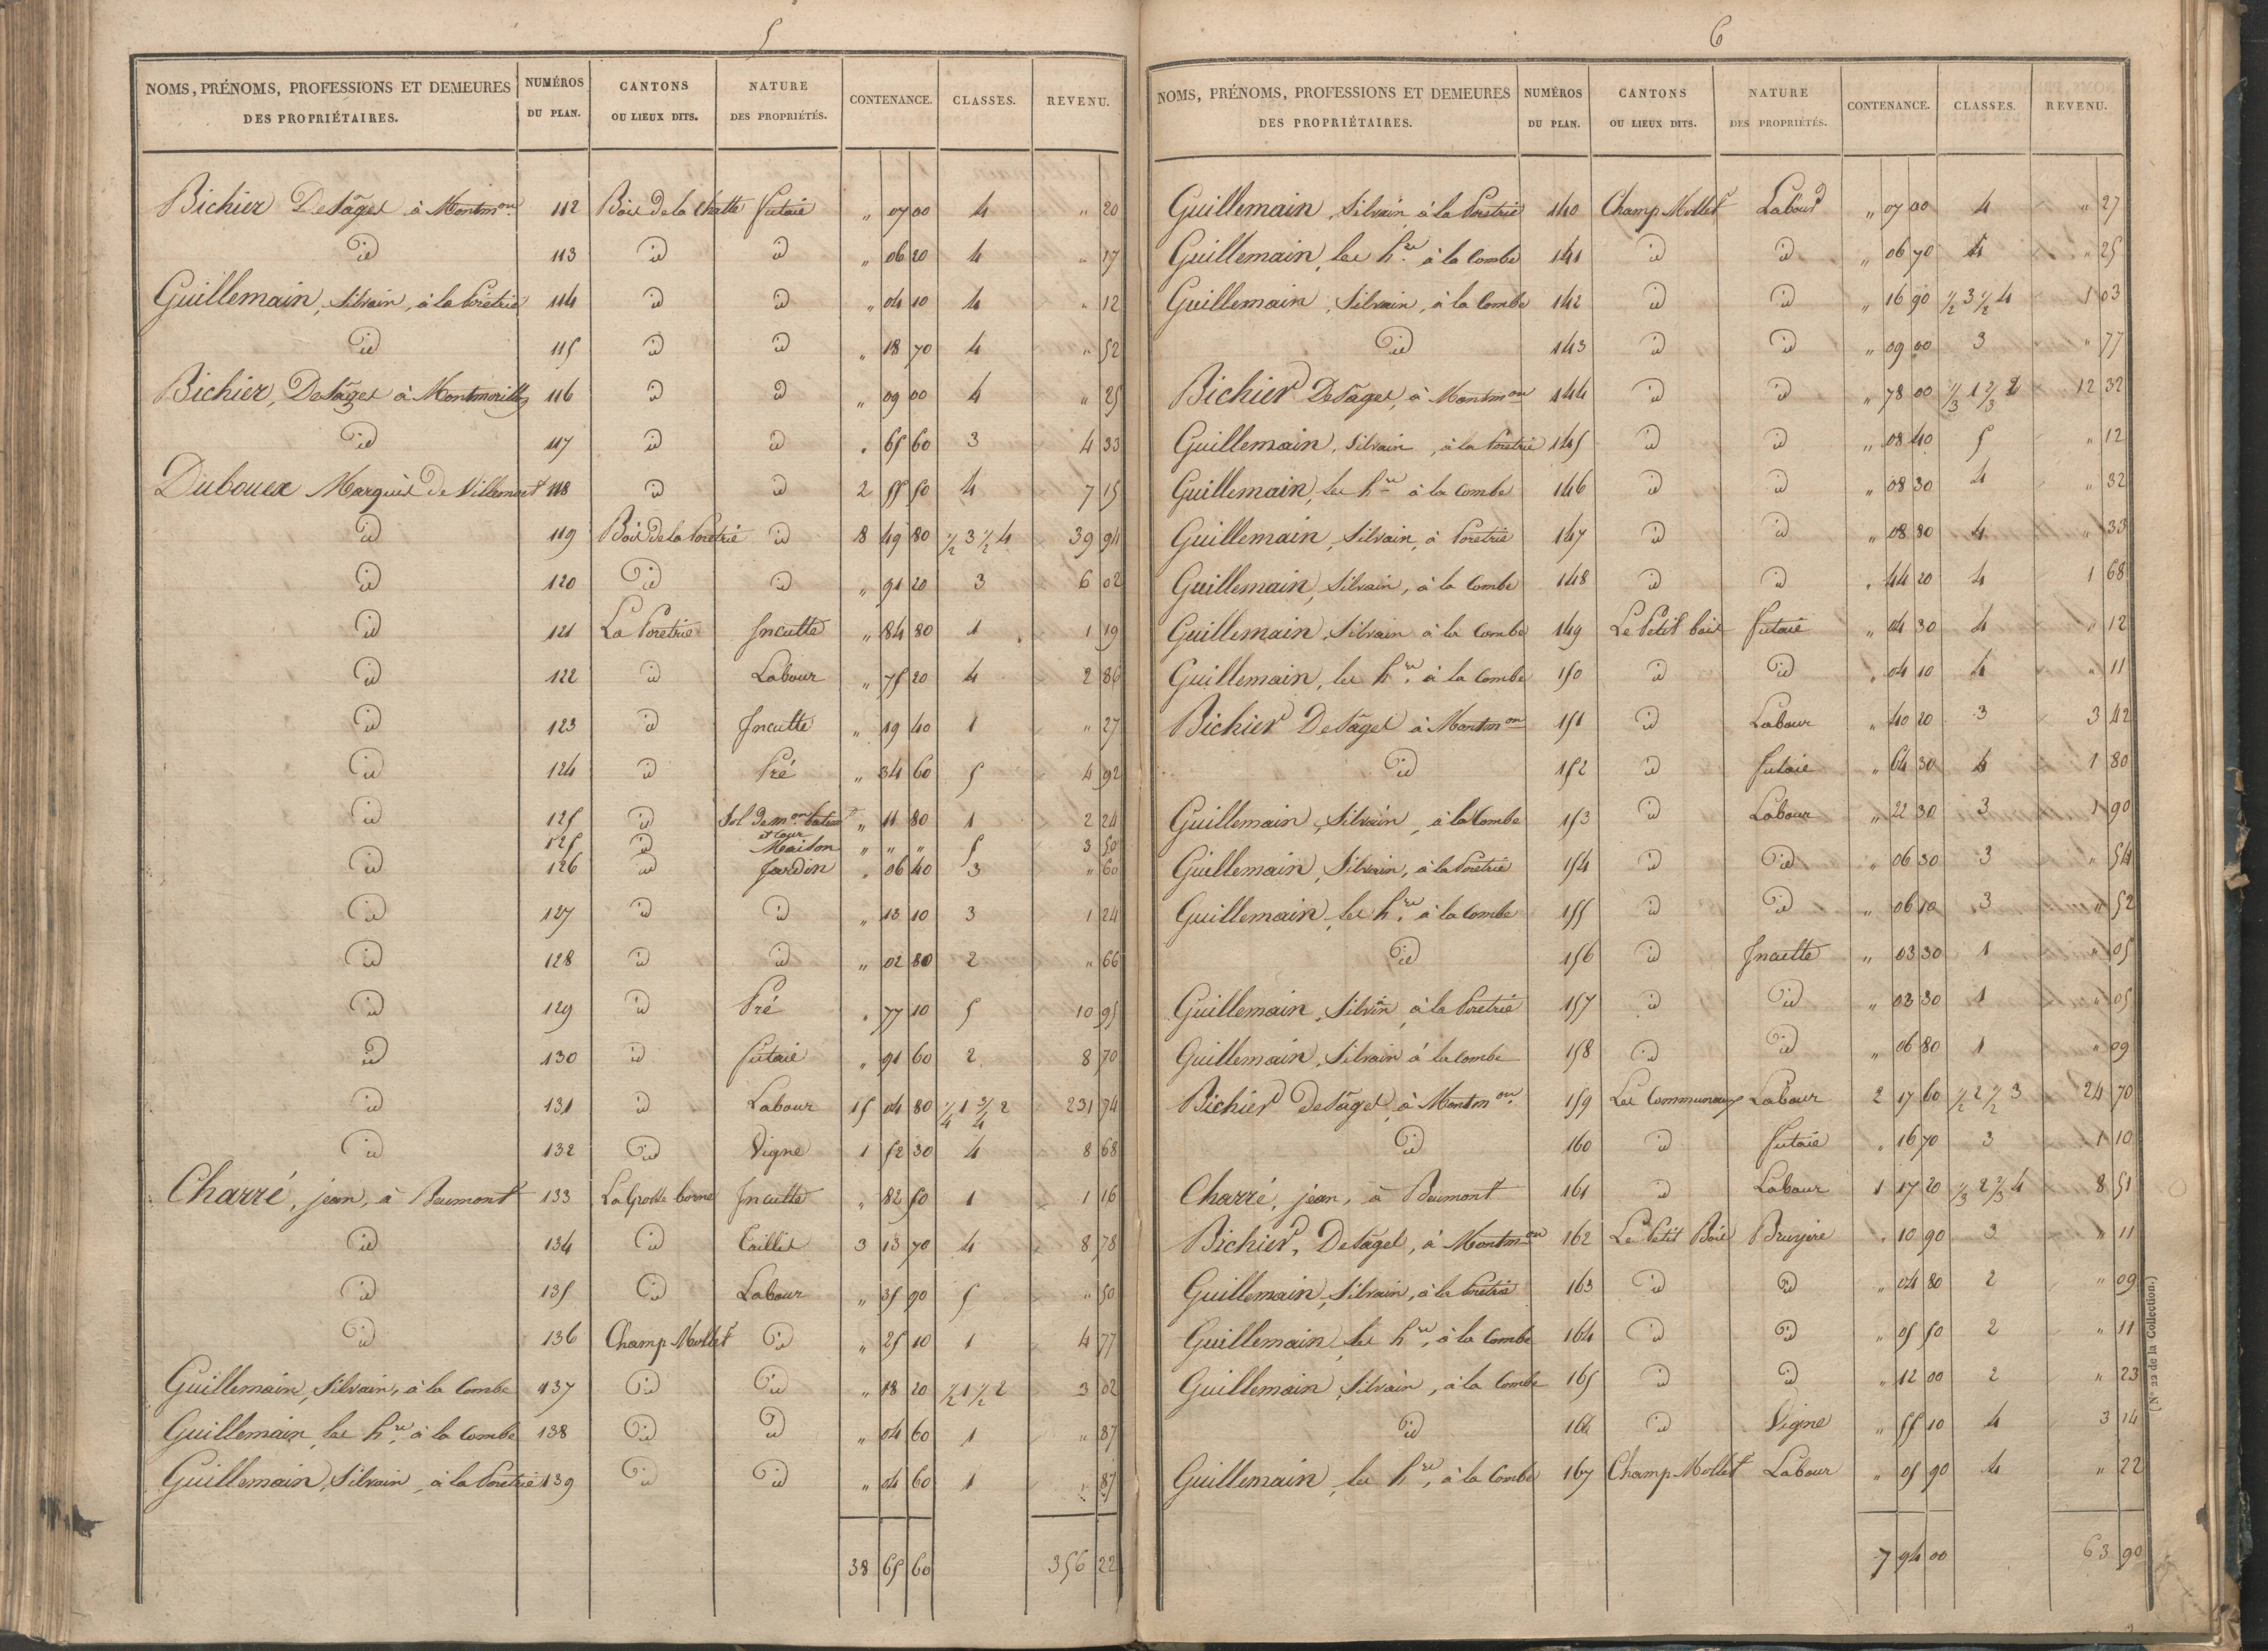 5
NOMS, PRÉNOMS, PROFESSIONS ET DEMEURES DES PROPRIÉTAIRES. NUMÉROS DU PLAN. CANTONS OU LIEUX DITS. NATURE DES PROPRIÉTÉS. CONTENANCE. CLASSES. REVENU.
Bichier Desâges à Montmon 112 Bois de la Chatte futaie " 07 00 4 " 20
id 113 id id " 06 20 4 " 17
Guillemain, Silvain, à la Poretrie 114 id id " 04 10 4 " 12
id 115 id id " 18 70 4 " 52
Bichier, Desâges à Montmorillon 116 id id " 09 00 4 " 25
id 117 id id " 65 60 3 4 33
Dubouex Marquis de Villemort 118 id id 2 55 50 4 7 15
id 119 Bois de la Poretrie id 8 49 80 1/2 3 1/2 4 39 94
id 120 id id " 91 20 3 6 02
id 121 La Poretrie Inculte " 84 80 1 1 19
id 122 id Labour " 75 20 4 2 86
id 123 id Inculte " 19 40 1 " 27
id 124 id Pré " 34 60 5 4 92
id 125 id Sol de mon batimt et cour " 11 80 1 2 24
125 id Maison " " " 5 3 50
id 126 id Jardin " 06 40 3 " 60
id 127 id id " 13 10 3 1 24
id 128 id id " 02 80 2 " 66
id 129 id Pré " 77 10 5 10 95
id 130 id futaie " 91 60 2 8 70
id 131 id Labour 15 04 80 1/4 1 3/4 2 231 74
id 132 id Vigne 1 52 30 4 8 68
Charré, jean, à Beumont 133 La Grosse borne Inculte " 82 50 1 1 16
id 134 id Taillis 3 13 70 4 8 78
id 135 id Labour " 35 90 5 " 50
id 136 Champ Mollet id " 25 10 1 4 77
Guillemain, Silvain, à la Combe 137 id id " 18 20 1/2 1 1/2 2 3 02
Guillemain, les hrs à la Combe 138 id id " 04 60 1 " 87
Guillemain, Silvain, à la Poretrie 139 id id " 04 60 1 " 87
38 65 60 356 22
6
NOMS, PRÉNOMS, PROFESSIONS ET DEMEURES DES PROPRIÉTAIRES. NUMÉROS DU PLAN. CANTONS OU LIEUX DITS. NATURE DES PROPRIÉTÉS. CONTENANCE. CLASSES. REVENU.
Guillemain, Silvain à la Poretrie 140 Champ Mollet Labour " 07 00 4 " 27
Guillemain, les hrs à la Combe 141 id id " 06 70 4 " 25
Guillemain, Silvain, à la Combe 142 id id " 16 90 1/2 3 1/2 4 1 03
id 143 id id " 09 00 3 " 77
Bichier Desâges, à Montmon 144 id id " 78 00 1/3 1 2/3 2 12 32
Guillemain, Silvain, à la Poretrie 145 id id " 08 40 5 " 12
Guillemain, les hrs à la Combe 146 id id " 08 30 4 " 32
Guillemain, Silvain, à Poretrie 147 id id " 08 80 4 " 33
Guillemain, Silvain, à la Combe 148 id id " 44 20 4 1 68
Guillemain, Silvain à la Combe 149 Le Petit bois futaie " 04 30 4 " 12
Guillemain, les hrs à la Combe 150 id id " 04 10 4 " 11
Bichier Desâges à Montmon 151 id Labour " 40 20 3 3 42
id 152 id futaie " 64 30 4 1 80
Guillemain, Silvain, à la Combe 153 id Labour " 22 30 3 1 90
Guillemain, Silvain, à la Poretrie 154 id id " 06 30 3 " 54
Guillemain, les hrs à la Combe 155 id id " 06 10 3 " 52
id 156 id Inculte " 03 30 1 " 05
Guillemain, Silvin à la Poretrie 157 id id " 03 30 1 " 05
Guillemain, Silvain à la Combe 158 id id " 06 80 1 " 09
Bichier Desâges, à Montmon 159 Les Communaux Labour 2 17 60 1/2 2 1/2 3 24 70
id 160 id futaie " 16 70 3 1 10
Charré, jean, à Beumont 161 id Labour 1 17 20 1/3 2 2/3 4 8 51
Bichier, Desâges, à Montmon 162 Le Petit Bois Bruyère " 10 90 3 " 11
Guillemain, Silvain, à la Poretrie 163 id id " 04 80 2 " 09
Guillemain, les hrs, à la Combe 164 id id " 05 50 2 " 11
Guillemain, Silvain, à la Combe 165 id id " 12 00 2 " 23
id 166 id Vigne " 55 10 4 3 14
Guillemain, les hrs, à la Combe 167 Champ Mollet Labour " 05 90 4 " 22
7 94 00 63 90
(N° 22 de la Collection.)